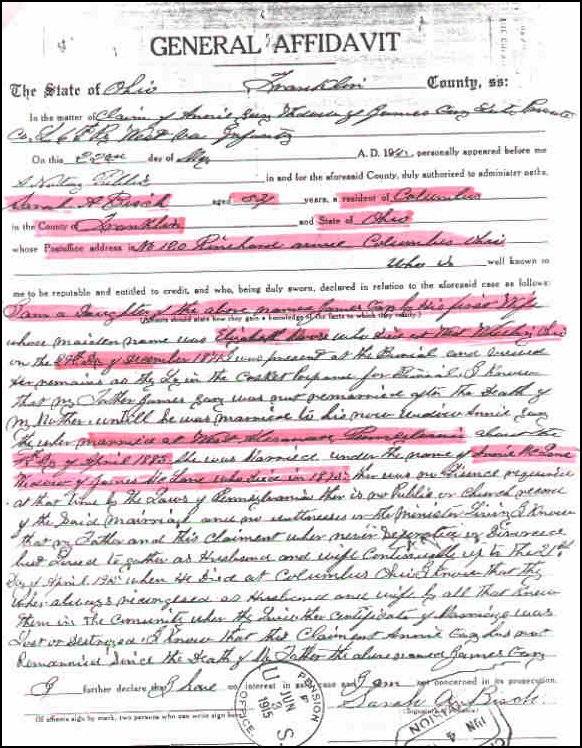 GENERAL AFFIDAVIT
The State of Ohio Franklin County, ss:
In the matter of Claim of Annie Guy Widow of James Guy Private
Co. 6 West Va Infantry
On this day of May A. D. 191 , personally appeared before me
A Notary Public in and for the aforesaid County, duly authorized to administer oaths,
Sarah A Bisch aged 52 years, a resident of Columbus
in the County of Franklin and State of Ohio
whose Postoffice address is No 120 Columbus Ohio
Who is well known to
me to be reputable and entitled to credit, and who, being duly sworn, declared in relation to the aforesaid case as follows:
I am a Daughter of the above named James Guy by His first Wife
(Affiants should state how they gain a knowledge of the facts to which they testify.)
whose maiden name was Elizabeth who died at West Wheeling Ohio
on the Day of December I was present at the Burial and viewed
Her remains as they Lay in the Casket Prepare for Burial I Know
that my Father James Guy was not remarried after the Death of
my Mother untill he was married to his now widow Annie Guy
married at West Alexander Pennsylvania about the
Day of April 1885 she was Married under the name of Annie McLane
Widow of James McLane who died in ther was no Lisence required
at that time by the Laws of Pennsylvania ther is no Public or Church record
of the Said Marriage and no witnesses or the Minister Living I Know
that my Father and this Claimant wher never Seperated or Divorced
but Lived to gather as Husband and wife Continually up to The 21st
Day of April when He Died at Columbus Ohio I know that they
wher always recognized as Husband and wife by all that knew
them in The Community wher the Certificate of Marriage was
Lost or Destroyed I Know that this Claimant Annie Guy has not
Remarried Since the Death of My Father the above named James Guy
I further declare that I have no interest in said case and I am not concerned in its prosecution.
Sarah A Bisch
(If affiants sign by mark, two persons who can write sign here.) (Signature of Affiants)
U. S. PENSION OFFICE
JUN 3 1915
JUN 4